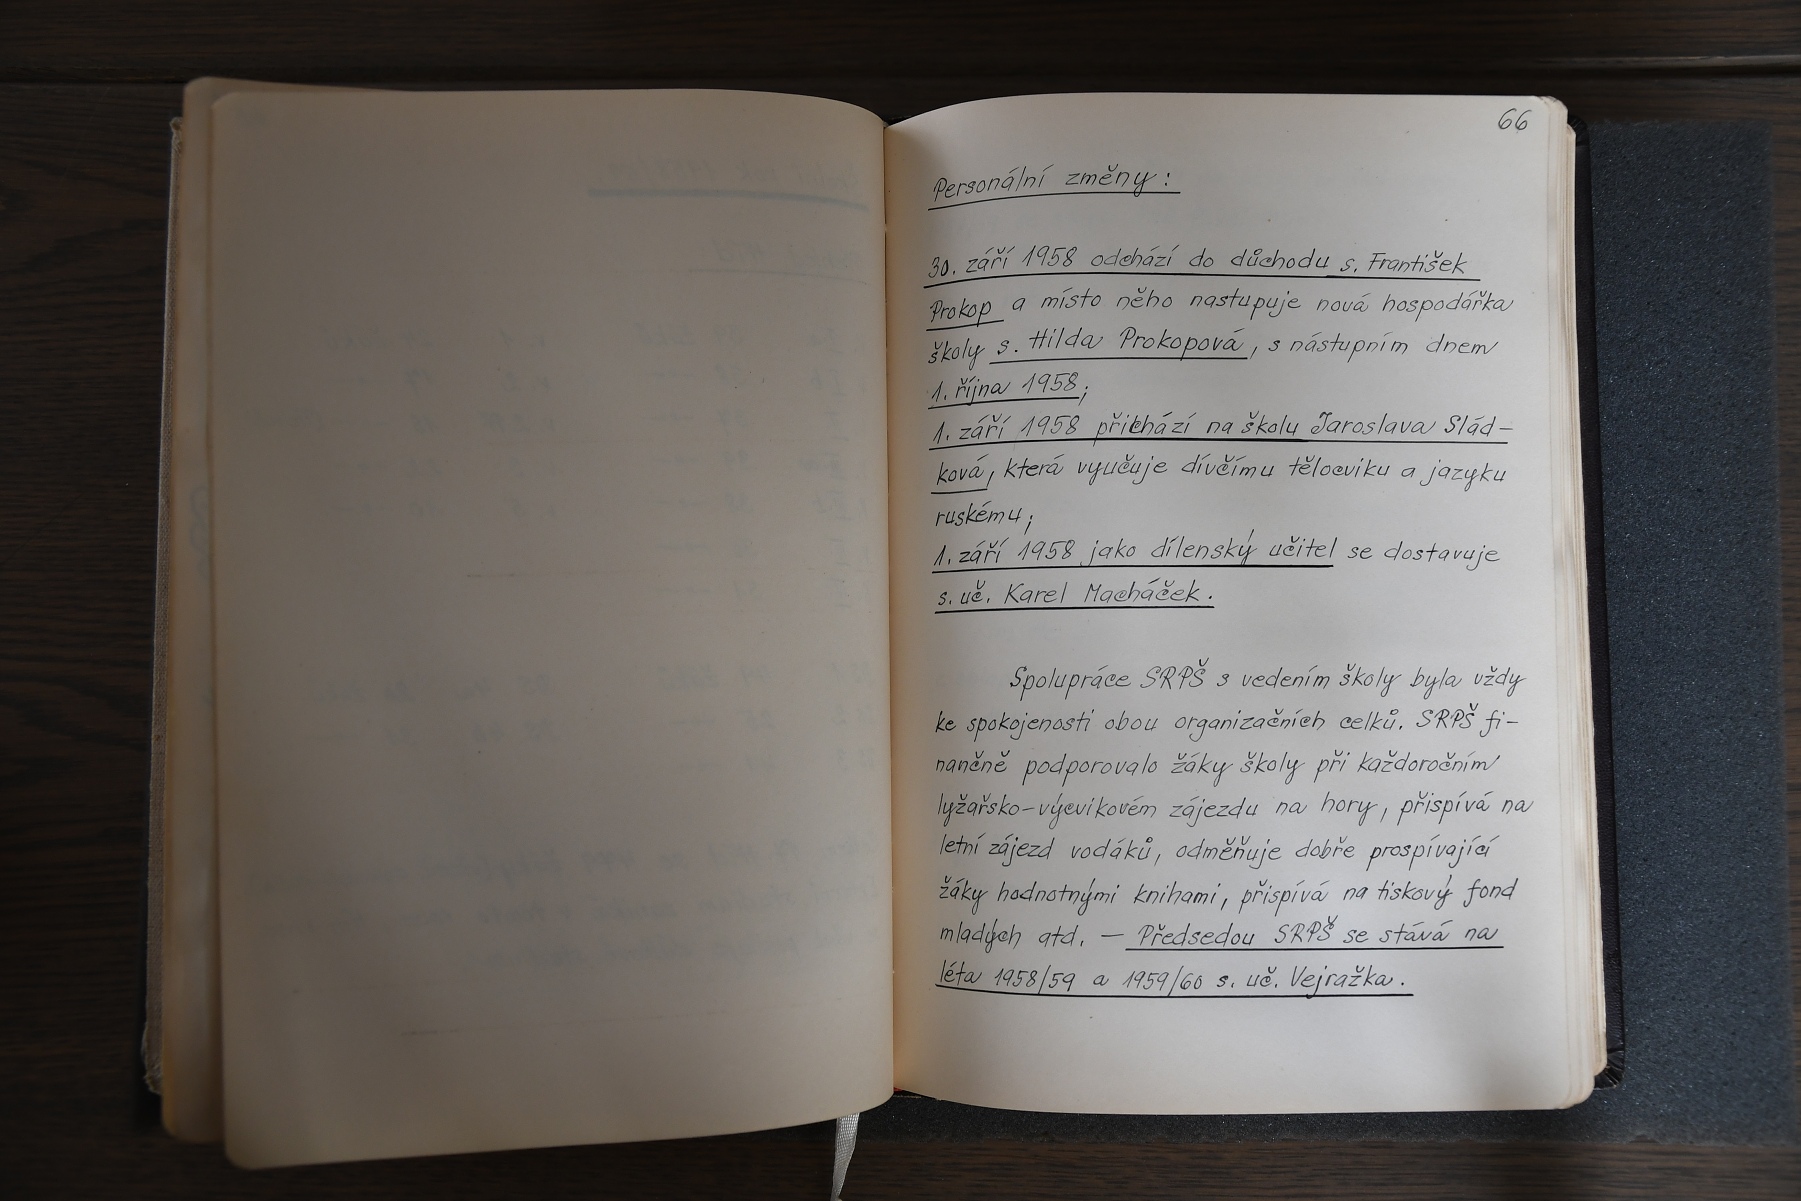 66
Personální změny:
30. září 1958 odchází do důchodu s. František
Prokop a místo něho nastupuje nová hospodářka
školy s. Hilda Prokopová, s nástupním dnem
1. října 1958;
1. září 1958 přichází na školu Jaroslava Slád-
ková, která vyučuje dívčímu tělocviku a jazyku
ruskému;
1. září 1958 jako dílenský učitel se dostavuje
s. uč. Karel Macháček.
Spolupráce SRPŠ s vedením školy byla vždy
ke spokojenosti obou organizačních celků. SRPŠ fi-
nančně podporovalo žáky školy při každoročním
lyžařsko-výcvikovém zájezdu na hory, přispívá na
letní zájezd vodáků, odměňuje dobře prospívající
žáky hodnotnými knihami, přispívá na tiskový fond
mladých atd. — Předsedou SRPŠ se stává na
léta 1958/59 a 1959/60 s. uč. Vejražka.